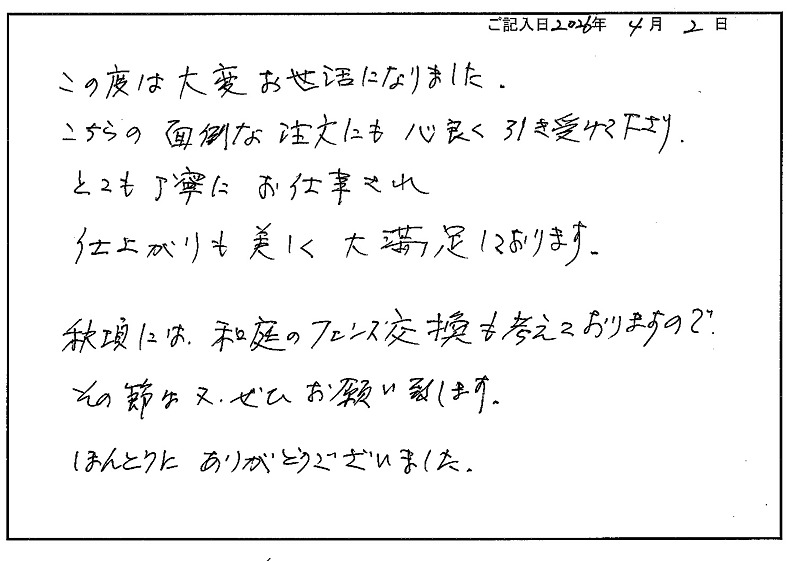 ご記入日2026年 4月 2日
この度は大変お世話になりました.
こちらの面倒な注文にも心良く引き受けて下さり.
とても丁寧にお仕事され
仕上がりも美しく大満足しております。
秋頃には.和庭のフェンス交換も考えておりますので.
その節は又.ぜひお願い致します。
ほんとうにありがとうございました.